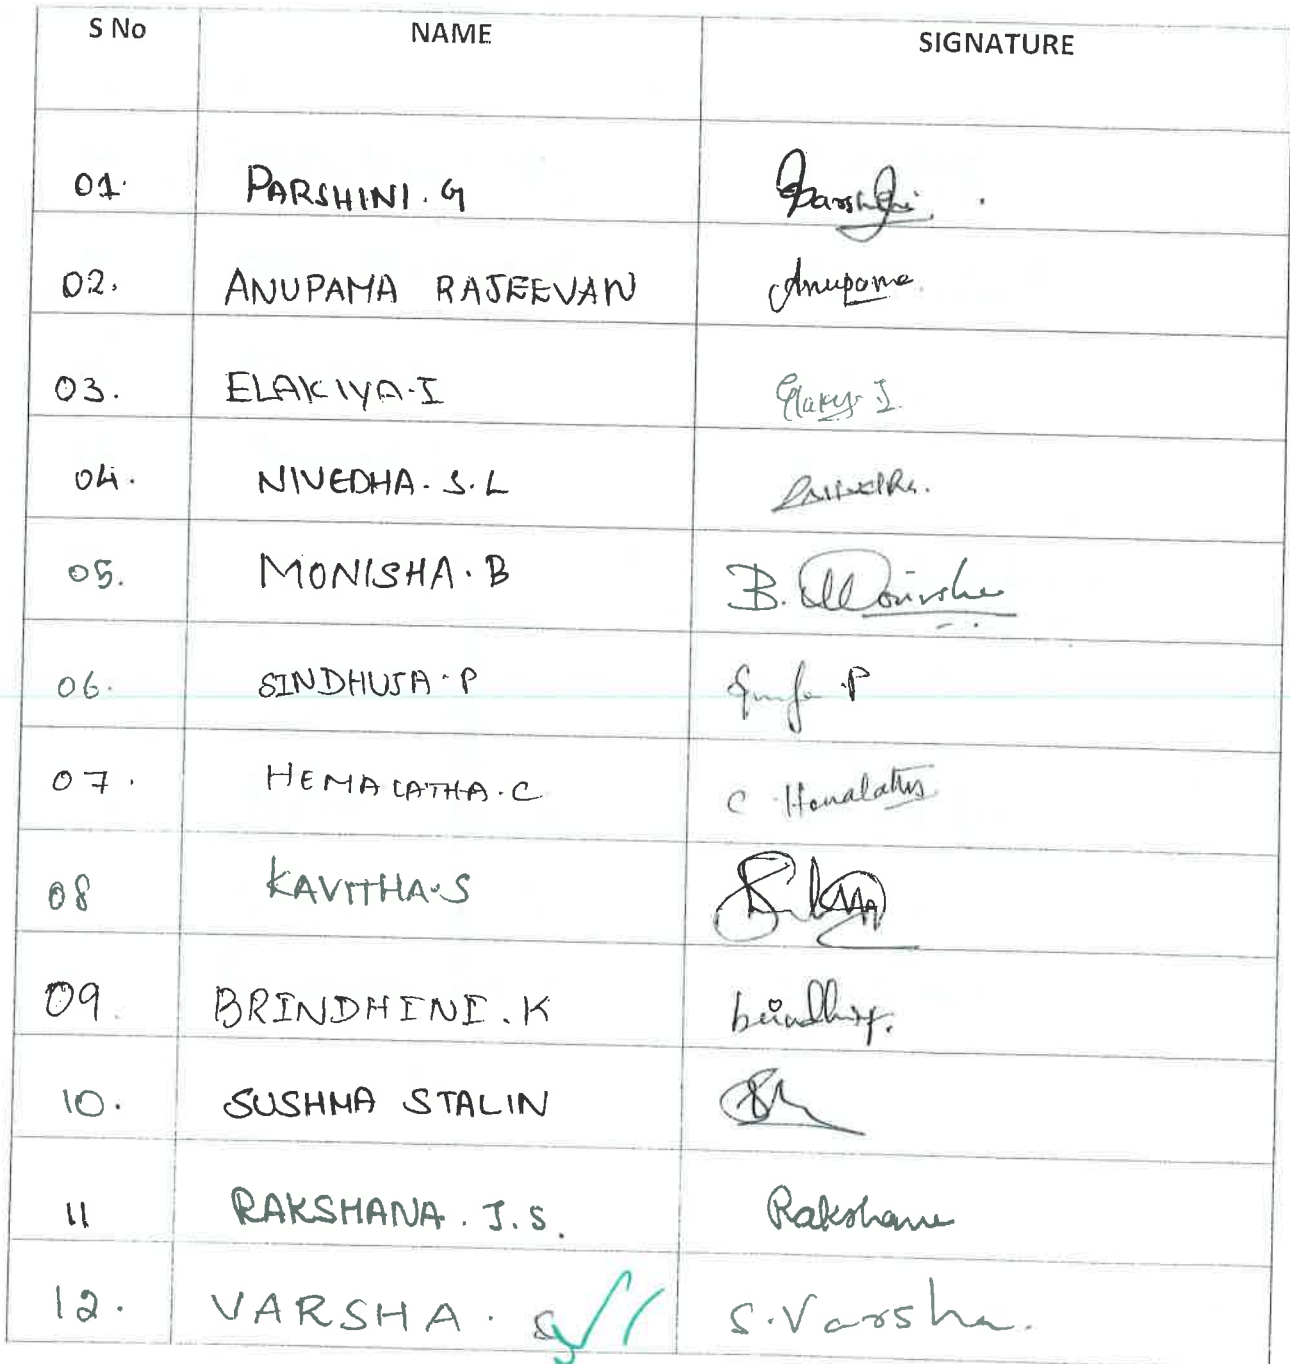 S No NAME SIGNATURE
01. PARSHINI. G Parshini.
02. ANUPAMA RAJEEVAN Anupama.
03. ELAKIYA.I I
04. NIVEDHA. S.L
05. MONISHA. B B. Monisha
06. SINDHUJA. P P
07. HEMALATHA. C C Hemalatha
08 KAVITHA.S
09. BRINDHINI. K
10. SUSHMA STALIN
11 RAKSHANA. J.S. Rakshana
12. VARSHA. S S. Varsha.